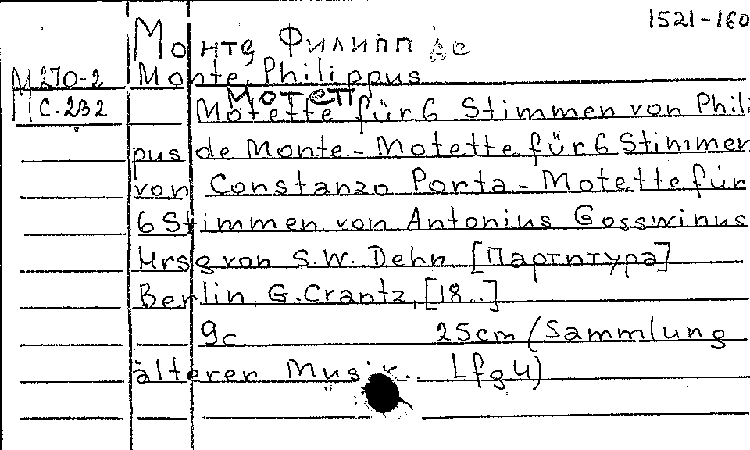 1521-160
Монтэ Филипп де
М 270-2 Monte, Philippus
МС.232 Мотет
Motette für 6 Stimmen von Phili
pus de Monte - Motette für 6 Stimmen
von Constanzo Porta - Motette für
6 Stimmen von Antonius Gosswinus
Hrsg von S.W. Dehn [Партитура]
Berlin, G. Crantz, [18..]
9c 25cm (Sammlung
älterer Musik. Lfg 4)